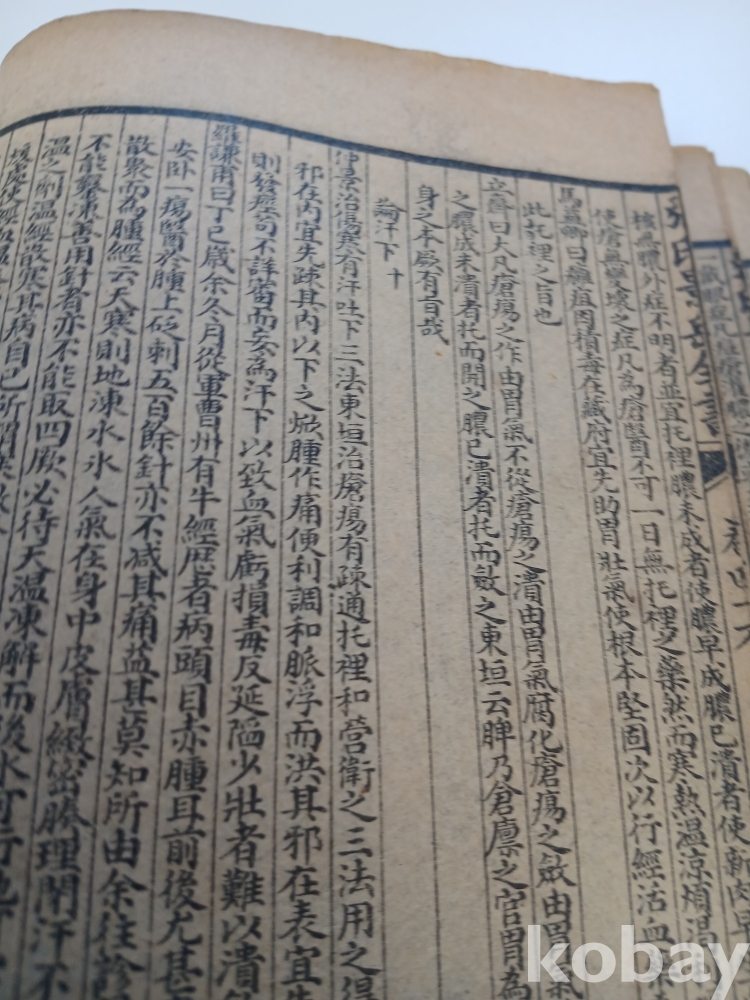 槐無膿外症不明者並宜托裡膿未成者使膿早成膿已潰者使新肉早
使瘡無變壞之症凡為瘡醫不可一日無托裡之藥然而寒熱溫涼煩渴
馬益卿曰癰疽因積毒在藏府宜先助胃壯氣使根本堅固次以行經活血
此托裡之旨也
立齋曰大凡瘡瘍之作由胃氣不從瘡瘍之潰由胃氣腐化瘡瘍之斂由胃氣
之膿成未潰者托而開之膿已潰者托而斂之東垣云脾乃倉廩之官胃為
身之本厥有旨哉
論汗下 十
仲景治傷寒有汗吐下三法東垣治瘡瘍有疏通托裡和營衛之三法用之得
邪在內宜先疎其內以下之焮腫作痛便利調和脈浮而洪其邪在表宜先
則發痙苟不詳審而妄為汗下以致血氣虧損毒反延陷少壯者難以潰
羅謙甫曰丁巳歲余冬月從軍曹州有牛經歷者病頭目赤腫耳前後尤甚
安臥一瘍醫於腫上砭刺五百餘針亦不减其痛益甚莫知所由余往診
散聚而為腫經云天寒則地凍水氷人氣在身中皮膚緻密腠理閉汗不
不能鑿凍善用針者亦不能取四厥必待天溫凍解而後水可行地
溫之劑溫經散寒其病自已所謂
張氏景岳全書
卷四十六
kobay